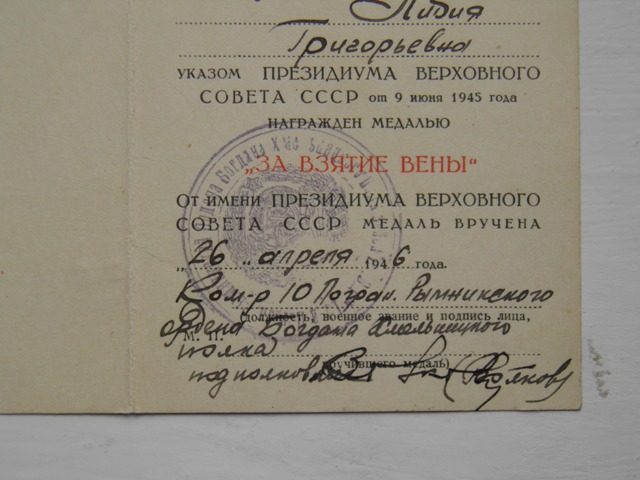 Лидия
Григорьевна
УКАЗОМ ПРЕЗИДИУМА ВЕРХОВНОГО
СОВЕТА СССР от 9 июня 1945 года
НАГРАЖДЕН МЕДАЛЬЮ
„ЗА ВЗЯТИЕ ВЕНЫ“
От имени ПРЕЗИДИУМА ВЕРХОВНОГО
СОВЕТА СССР МЕДАЛЬ ВРУЧЕНА
„26 „ апреля 1946 года.
Ком-р 10 Погран. Рымникского
(должность, военное звание и подпись лица,
ордена Богдана Хмельницкого
М. П.
полка
вручившего медаль)
подполковник